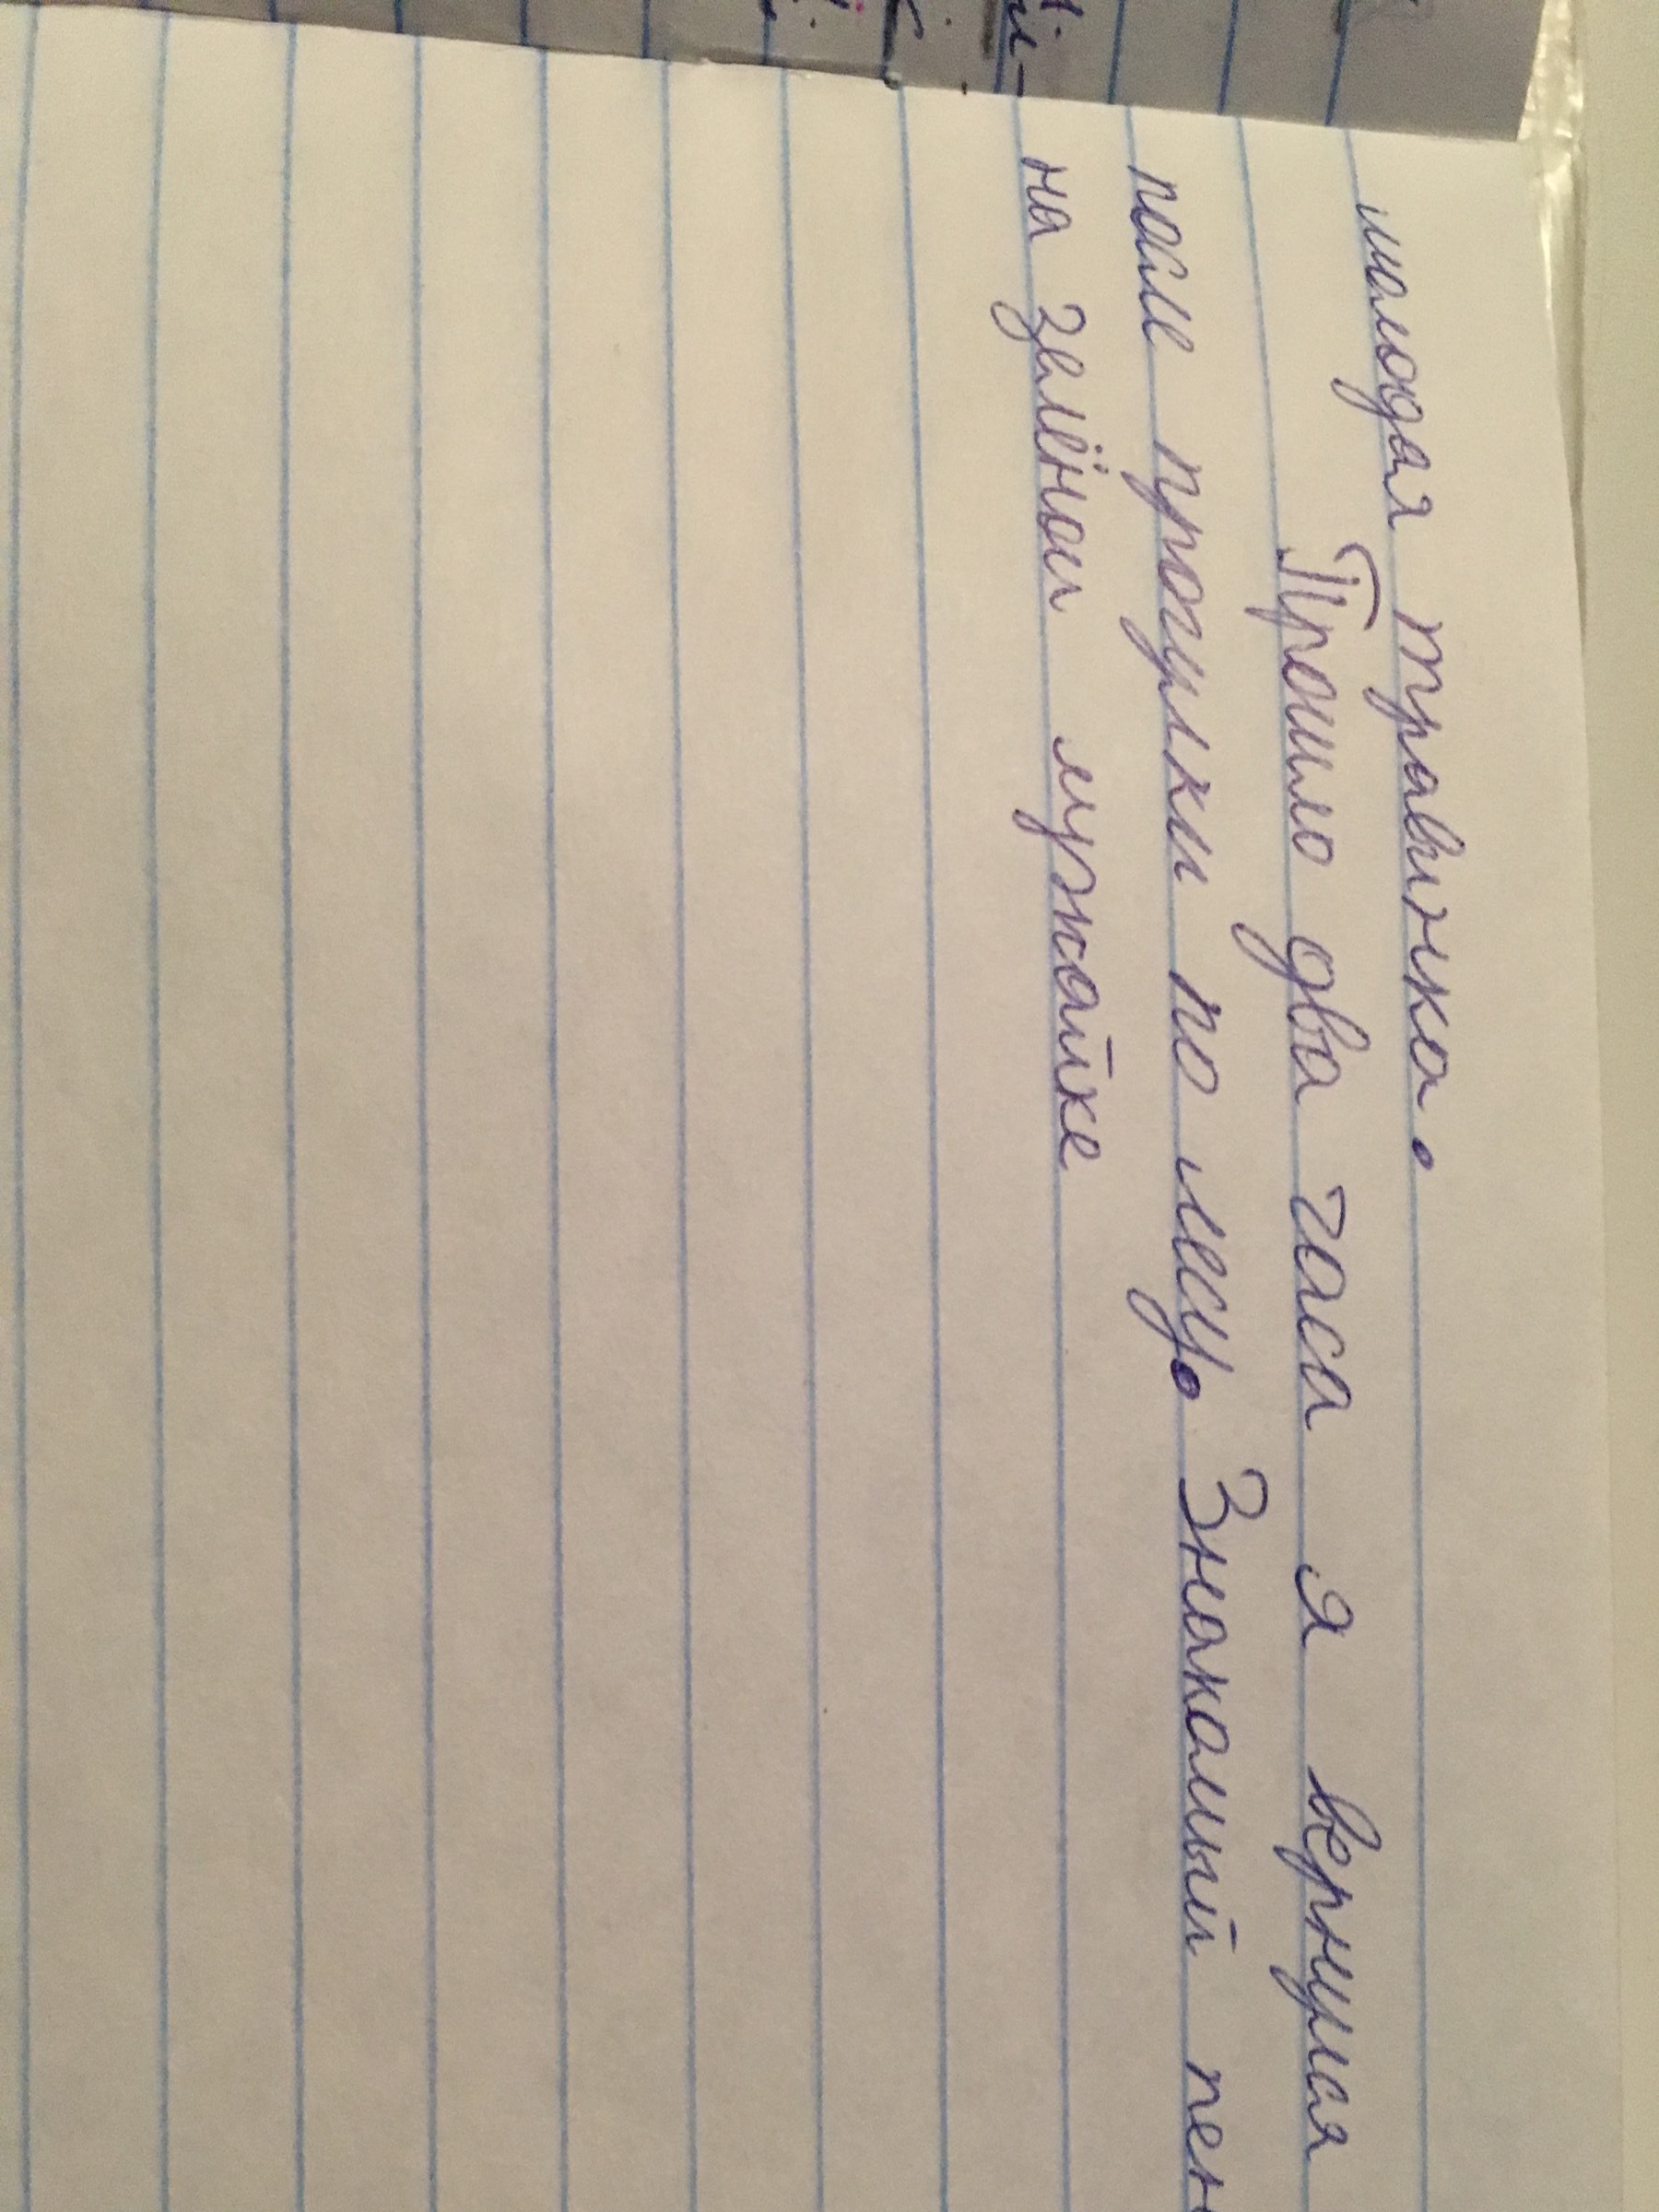 молодая травинка.
Прошло два часа я вернулся
после прогулки по лесу. Знакомый пен
на зелёной лужайке